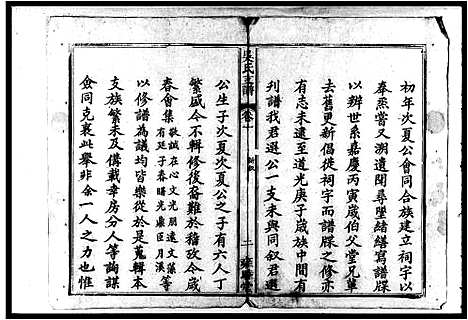 初年次夏公會同合族建立祠宇以
奉烝嘗又溯遺聞尋墜緒繕寫譜牒
以辨世系嘉慶丙寅歲伯父堂兄輩
去舊更新倡徙祠宇而譜牒之修亦
有志未逮至道光庚子歲族中間有
刋譜我君選公一支未與同叙君選
吳氏主譜 卷一 二
公生子次夏次夏公之子有六人丁
繁盛今不輯修後裔難於稽攷今歲
春會集敬誠在心文光朋遠文藻等
有廷子春曙光鼎臣月漢
以修譜為議均皆樂從於是蒐輯本
支族繁未及備載幸房分人等詢謀
僉同克襄此舉非余一人之力也惟